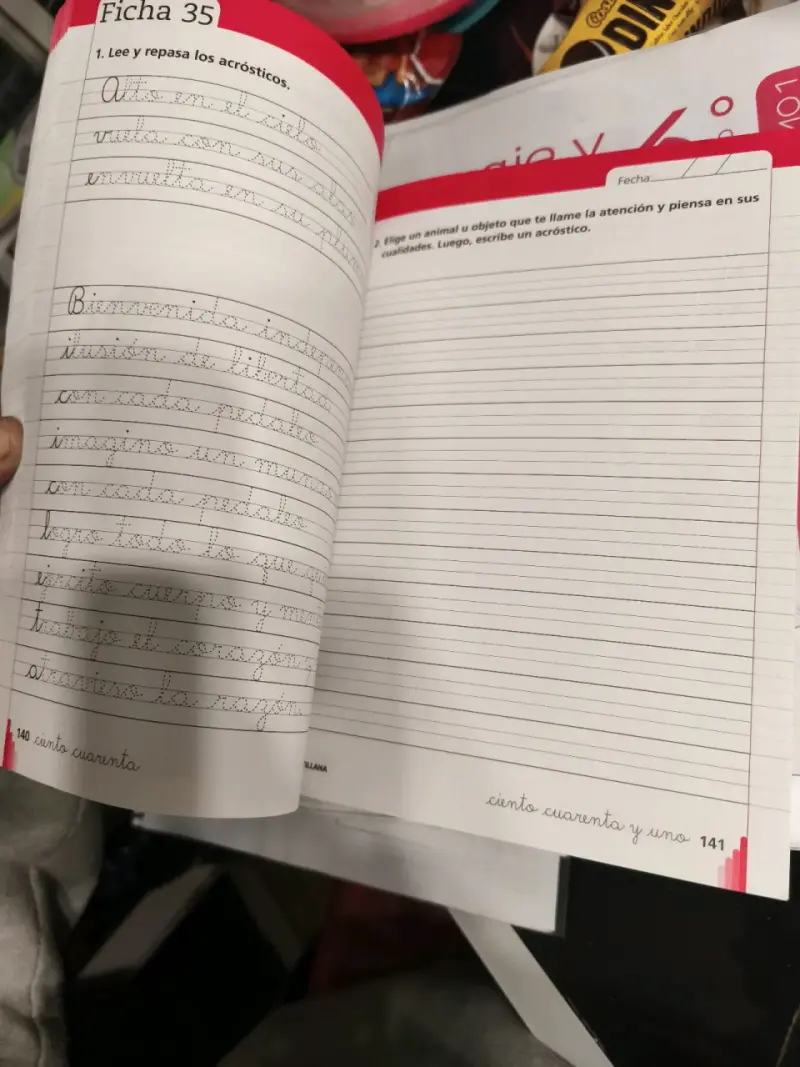 Ficha 35
1. Lee y repasa los acrósticos.
Alto en el cielo
vuela con sus alas
envuelta en su
Bienvenida
ilusión de libertad
con cada pedaleo
imagino un
con cada pedaleo
logro todo lo que
ejército cuerpo y
trabajo el corazón
atravieso la razón
140 ciento cuarenta
Fecha:
2. Elige un animal u objeto que te llame la atención y piensa en sus
cualidades. Luego, escribe un acróstico.
ciento cuarenta y uno 141
101